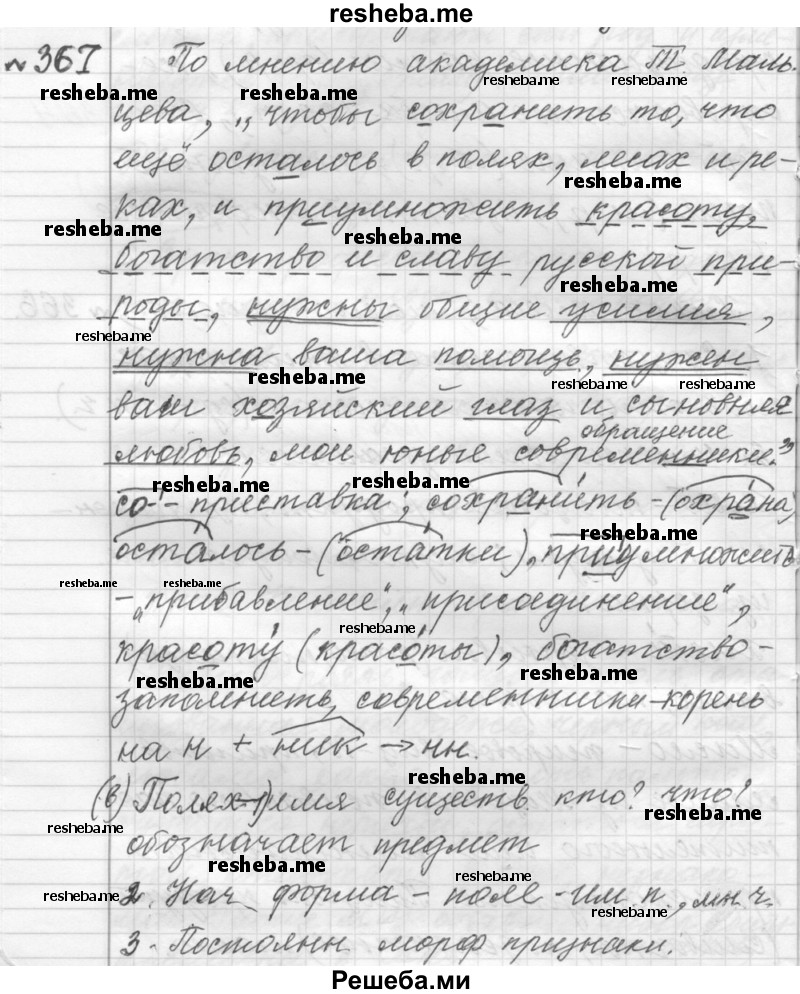 resheba.me
№367 По мнению академика Т. Маль-
resheba.me resheba.me
resheba.me resheba.me
цева, „чтобы сохранить то, что
ещё осталось в полях, лесах и ре-
resheba.me
ках, и приумножить красоту,
resheba.me resheba.me
богатство и славу русской при-
resheba.me
роды, нужны общие усилия,
resheba.me
нужна ваша помощь, нужен
resheba.me resheba.me resheba.me
ваш хозяйский глаз и сыновняя
обращение
любовь, мои юные современники."
resheba.me resheba.me
со- - приставка; сохранить - (охрана),
resheba.me
осталось - (остатки), приумножить
resheba.me resheba.me
- „прибавление", „присоединение",
resheba.me
красоту (красоты), богатство -
resheba.me resheba.me
запомнить, современники - корень
на н + ник → нн.
resheba.me
(в) Полях - 1) имя существ. кто? что?
resheba.me resheba.me
обозначает предмет
resheba.me resheba.me
2. Нач. форма - поле - им. п., мн. ч.
resheba.me resheba.me
3. Постоянн. морф. признаки.
Решеба.ми